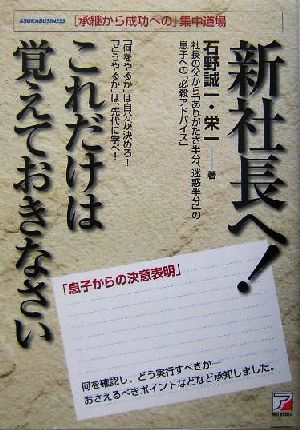 ASUKA BUSINESS
「承継から成功への」集中道場
新社長へ!
これだけは
覚えておきなさい
石野誠一・栄一 著
社長の父から「ありがたさ半分、迷惑半分」の
息子への「必殺アドバイス」
「何をやるか」は自分が決めろ!
「どうやるか」は、先代に学べ!
「息子からの決意表明」
何を確認し、どう実行すべきか―
おさえるべきポイントなどなど承知しました。